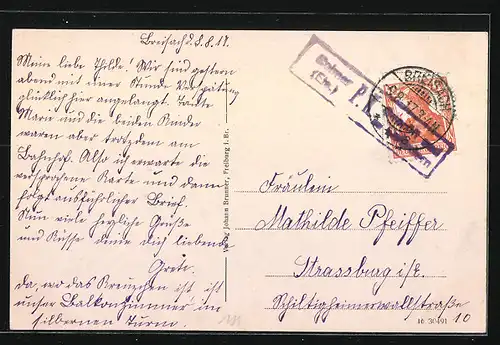 Breisach d. 8.8.17.
Meine liebe Thilde! Wir sind gestern
abend mit einer Stunde Verspätung
glücklich hier angelangt. Tante
Marie und die beiden Kinder
waren aber trotzdem am
Bahnhof. Also ich erwarte die
versprochene Karte und dann
folgt ausführlicher Brief.
Nun viele herzliche Grüße
und Küsse deine dich liebende
Grete.
da, wo das Kreuzchen ist ist
unser Balkonzimmer im
silbernen Turm.
Verlag Johann Brunner, Freiburg i. Br.
BREISACH
P.K.
Fräulein
Mathilde Pfeiffer
Strassburg i/E.
Schiltigheimerwallstraße
10
16 30491